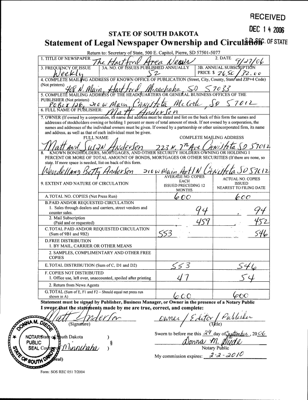 RECEIVED
DEC 14 2006
STATE OF SOUTH DAKOTA
Statement of Legal Newspaper Ownership and Circulation
OF STATE
Return to: Secretary of State, 500 E. Capitol, Pierre, SD 57501-5077
1. TITLE OF NEWSPAPER The Hartford Area News
2. DATE
3. FREQUENCY OF ISSUE
Weekly
3A. NO. OF ISSUES PUBLISHED ANNUALLY
52
3B. ANNUAL SUBSCRIPTION
PRICE $
4. COMPLETE MAILING ADDRESS OF KNOWN OFFICE OF PUBLICATION (Street, City, County, State and ZIP+4 Code)
(Not printers)
N. Main, Hartford Minnehaha SD 57033
5. COMPLETE MAILING ADDRESS OF THE HEADQUARTERS OR GENERAL BUSINESS OFFICES OF THE PUBLISHER
(Not printers)
Main Canistota McCook SD 57012
6. FULL NAME OF PUBLISHER: Matt Anderson
7. OWNER (If owned by a corporation, if name and address must be stated and list on the back of this form the names and
addresses of stockholders owning or holding 1 percent or more of total amount of stock. If not owned by a corporation, the
names and addresses of the individual owners must be given. If owned by a partnership or other unincorporated firm, its name
and address, as well as that of each individual must be given.
FULL NAME COMPLETE MAILING ADDRESS
Matt and Anderson Ave Canistota SD 57012
8. KNOWN BONDHOLDERS, MORTGAGEES, AND OTHER SECURITY HOLDERS OWNING OR HOLDING 1
PERCENT OR MORE OF TOTAL AMOUNT OF BONDS, MORTGAGES OR OTHER SECURITIES (If there are none, so
state. If more space is needed, list on back of this form.)
Anderson Main Canistota SD 57012
9. EXTENT AND NATURE OF CIRCULATION
AVERAGE NO. COPIES
EACH
ISSUED PRECEDING 12
MONTHS
ACTUAL NO. COPIES
ISSUED
NEAREST TO FILING DATE
A. TOTAL NO. COPIES (Net Press Run) 600 600
B. PAID AND/OR REQUESTED CIRCULATION
1. Sales through dealers and carriers, street vendors and
counter sales. 94 94
2. Mail Subscription
(Paid and or requested) 459 452
C. TOTAL PAID AND/OR REQUESTED CIRCULATION
(Sum of 9B1 and 9B2) 553 546
D. FREE DISTRIBUTION
1. BY MAIL, CARRIER OR OTHER MEANS
2. SAMPLES, COMPLIMENTARY AND OTHER FREE
COPIES
E. TOTAL DISTRIBUTION (Sum of C, D1 and D2) 553 546
F. COPIES NOT DISTRIBUTED
1. Office use, left over, unaccounted, spoiled after printing 47 54
2. Return from News Agents
G. TOTAL (Sum of E, F1 and F2 - Should equal net press run
shown in A) 600 600
Statement must be signed by Publisher, Business Manager, or Owner in the presence of a Notary Public
I swear that the statements made by me are true, correct, and complete:
Matt Anderson
(Signature)
Owner / Editor / Publisher
(Title)
State of South Dakota )
County of Minnehaha )
Sworn to before me this 29 day of September, 2006
Donna M.
Notary Public
My commission expires: 2-2-2010
DONNA M.
NOTARY
PUBLIC
SEAL
SOUTH DAKOTA
Form: SOS REC 051 7/2004